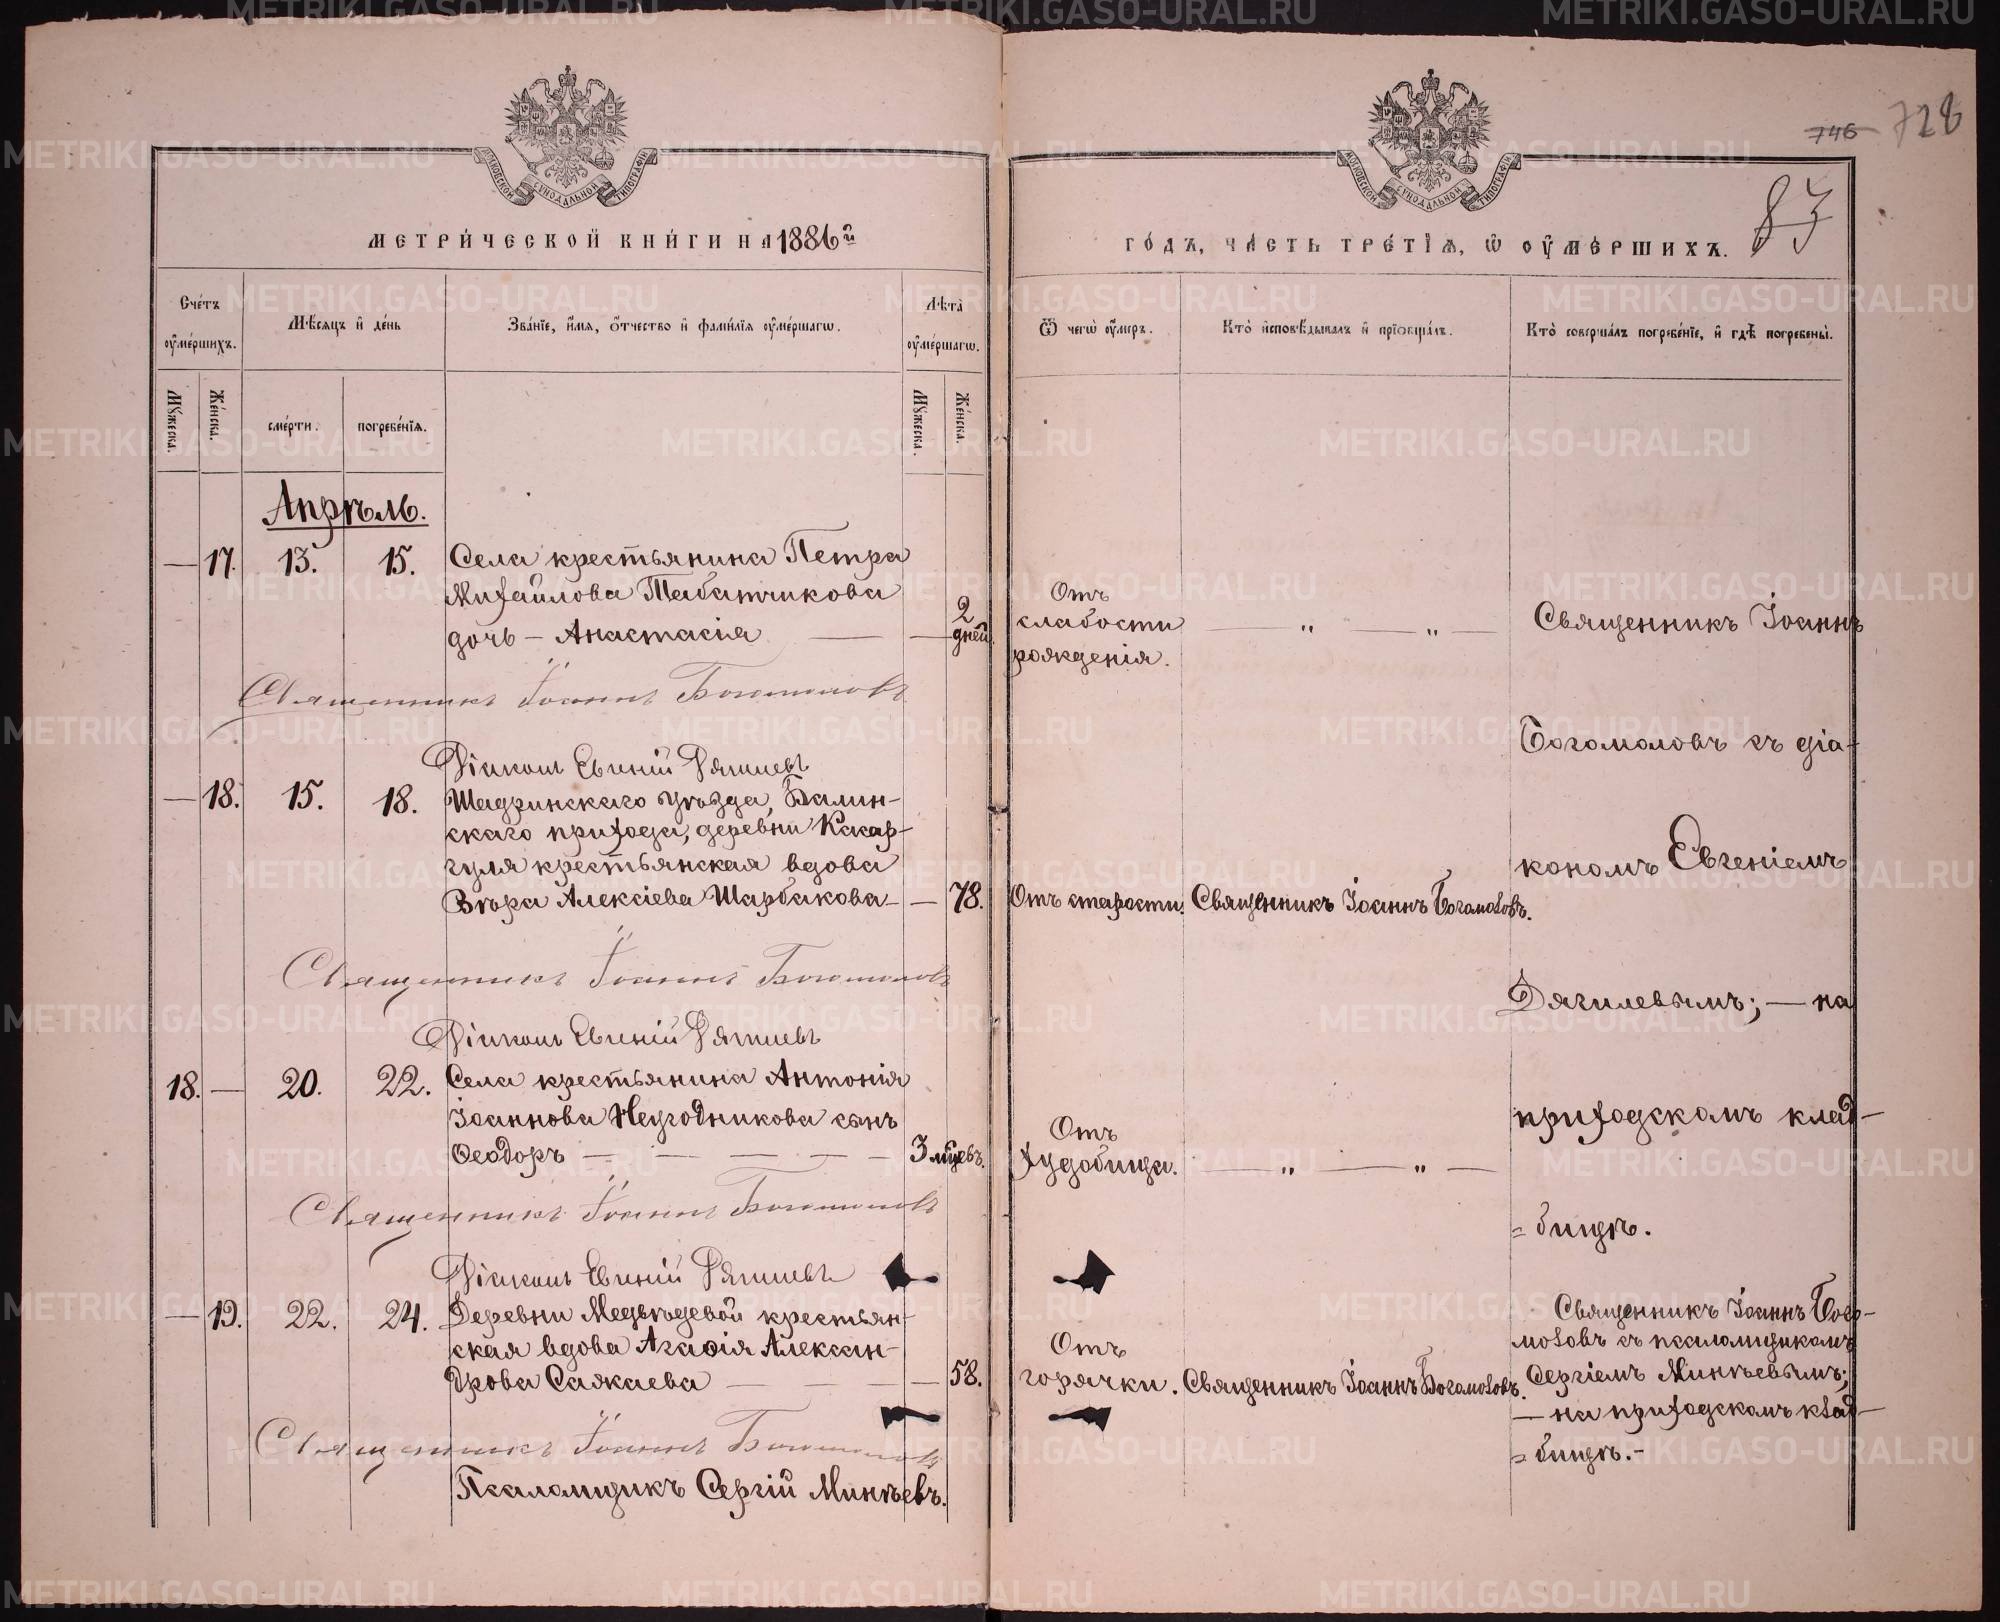 МЕТРИЧЕСКОЙ КНИГИ НА 1886й
Счетъ оумершихъ.
Мѣсяцъ и день
Званіе, имя, отчество и фамилія оумершагѡ.
Лѣта оумершагѡ.
Мужеска.
Женска.
смерти.
погребенія.
Мужеска.
Женска.
Апрѣль.
— 17. 13. 15. Села крестьянина Петра
Михайлова Табатчикова
дочь – Анастасія — — 2 дней.
Священникъ Іоаннъ Богомоловъ
Діаконъ Евгеній Дягилевъ
— 18. 15. 18. Шадринскаго уѣзда, Балин-
скаго прихода, деревни Какар-
гуля крестьянская вдова
Вѣра Алексіева Шарбакова — — 78.
Священникъ Іоаннъ Богомоловъ
Діаконъ Евгеній Дягилевъ
18. — 20. 22. Села крестьянина Антонія
Іоаннова Неугодникова сынъ
Ѳеодоръ — — — — — 3 мцевъ.
Священникъ Іоаннъ Богомоловъ
Діаконъ Евгеній Дягилевъ
— 19. 22. 24. Деревни Медвѣдевой крестьян-
ская вдова Агаѳія Алексан-
дрова Сажаева — — — 58.
Священникъ Іоаннъ Богомоловъ
Псаломщикъ Сергій Минѣевъ.
746 728
83
ГОДЪ, ЧАСТЬ ТРЕТІЯ, Ѡ ОУМЕРШИХЪ.
Ѿ чегѡ оумеръ.
Кто исповѣдывалъ и пріобщалъ.
Кто совершалъ погребеніе, и гдѣ погребены.
Отъ
слабости
рожденія.
— „ — „ —
Священникъ Іоаннъ
Богомоловъ съ діа-
кономъ Евгеніемъ
Отъ старости. Священникъ Іоаннъ Богомоловъ.
Дягилевымъ; — на
приходскомъ клад-
Отъ
худобища.
— „ — „ —
= бищѣ.
Отъ
горячки. Священникъ Іоаннъ Богомоловъ.
Священникъ Іоаннъ Бого-
моловъ съ псаломщикомъ
Сергіемъ Минѣевымъ;
— на приходскомъ клад-
= бищѣ. –
METRIKI.GASO-URAL.RU